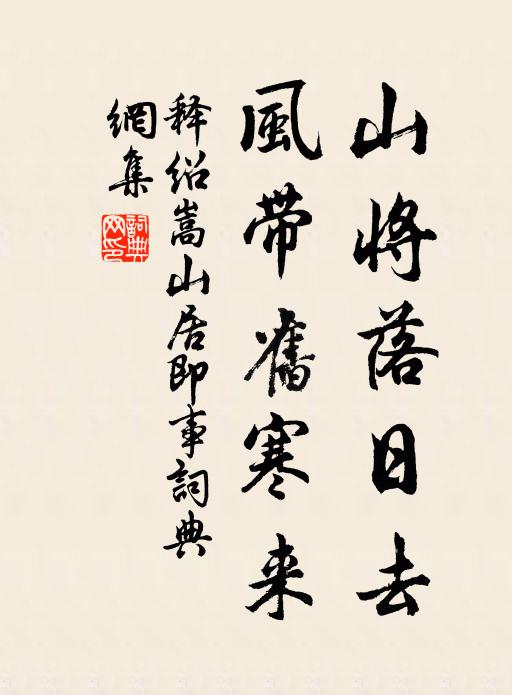 山将落日去
風帶舊寒来
释绍嵩山居即事詞典
網集
詞典
网印